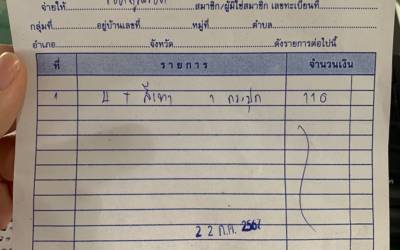 จ่ายให้ สมาชิก/ผู้มิใช่สมาชิก เลขทะเบียนที่
กลุ่มที่ อยู่บ้านเลขที่ หมู่ที่ ตำบล
อำเภอ จังหวัด ดังรายการต่อไปนี้
ที่ รายการ จำนวนเงิน
1 สีเทา 1 กระปุก 110
22 ก.ค. 2567